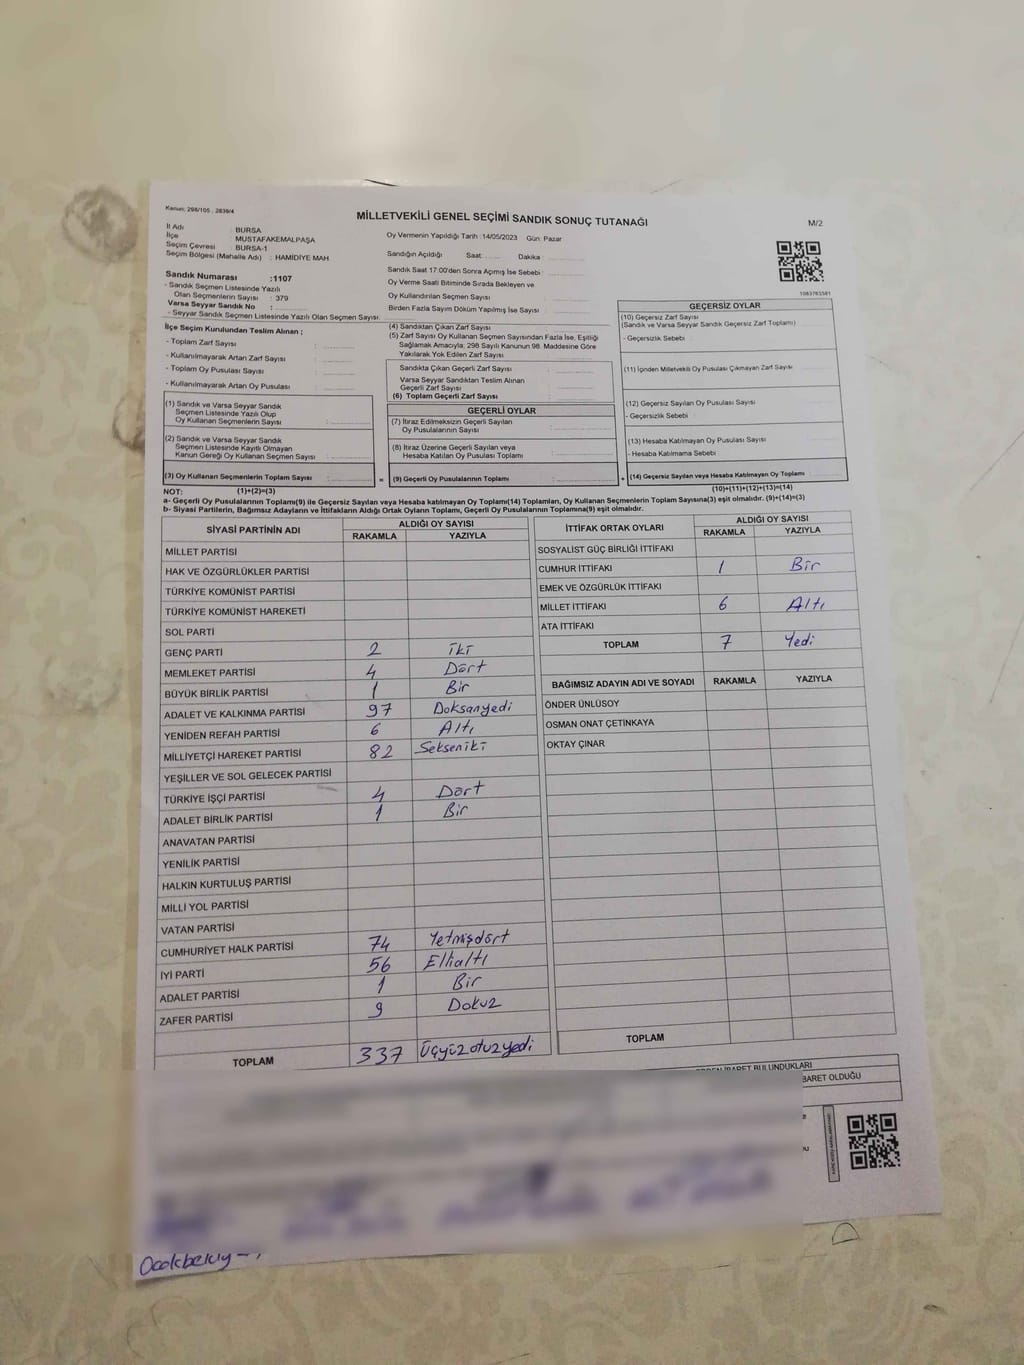 Kanun: 298/105 , 2839/4
MİLLETVEKİLİ GENEL SEÇİMİ SANDIK SONUÇ TUTANAĞI
M/2
İl Adı : BURSA
İlçe : MUSTAFAKEMALPAŞA
Seçim Çevresi : BURSA-1
Seçim Bölgesi (Mahalle Adı) : HAMİDİYE MAH.
Sandık Numarası :1107
- Sandık Seçmen Listesinde Yazılı
Olan Seçmenlerin Sayısı : 379
Varsa Seyyar Sandık No :
- Seyyar Sandık Seçmen Listesinde Yazılı Olan Seçmen Sayısı:
Oy Vermenin Yapıldığı Tarih :14/05/2023 Gün: Pazar
Sandığın Açıldığı Saat: Dakika :
Sandık Saat 17:00'den Sonra Açımış İse Sebebi :
Oy Verme Saati Bitiminde Sırada Bekleyen ve
Oy Kullandırılan Seçmen Sayısı
Birden Fazla Sayım Döküm Yapılmış İse Sayısı :
1083763581
İlçe Seçim Kurulundan Teslim Alınan ;
- Toplam Zarf Sayısı
- Kullanılmayarak Artan Zarf Sayısı
- Toplam Oy Pusulası Sayısı
- Kullanılmayarak Artan Oy Pusulası
(1) Sandık ve Varsa Seyyar Sandık
Seçmen Listesinde Yazılı Olup
Oy Kullanan Seçmenlerin Sayısı
(2) Sandık ve Varsa Seyyar Sandık
Seçmen Listesinde Kayıtlı Olmayan
Kanun Gereği Oy Kullanan Seçmen Sayısı
(3) Oy Kullanan Seçmenlerin Toplam Sayısı
(4) Sandıktan Çıkan Zarf Sayısı
(5) Zarf Sayısı Oy Kullanan Seçmen Sayısından Fazla İse, Eşitliği
Sağlamak Amacıyla; 298 Sayılı Kanunun 98. Maddesine Göre
Yakılarak Yok Edilen Zarf Sayısı
Sandıkta Çıkan Geçerli Zarf Sayısı
Varsa Seyyar Sandıktan Teslim Alınan
Geçerli Zarf Sayısı
(6) Toplam Geçerli Zarf Sayısı
GEÇERLİ OYLAR
(7) İtiraz Edilmeksizin Geçerli Sayılan
Oy Pusulalarının Sayısı
(8) İtiraz Üzerine Geçerli Sayılan veya
Hesaba Katılan Oy Pusulası Toplamı
(9) Geçerli Oy Pusulalarının Toplamı
GEÇERSİZ OYLAR
(10) Geçersiz Zarf Sayısı
(Sandık ve Varsa Seyyar Sandık Geçersiz Zarf Toplamı)
- Geçersizlik Sebebi
(11) İçinden Milletvekili Oy Pusulası Çıkmayan Zarf Sayısı
(12) Geçersiz Sayılan Oy Pusulası Sayısı
- Geçersizlik Sebebi
(13) Hesaba Katılmayan Oy Pusulası Sayısı
- Hesaba Katılmama Sebebi :
(14) Geçersiz Sayılan veya Hesaba Katılmayan Oy Toplamı
NOT: (1)+(2)=(3)
(10)+(11)+(12)+(13)=(14)
a- Geçerli Oy Pusulalarının Toplamı(9) ile Geçersiz Sayılan veya Hesaba katılmayan Oy Toplamı(14) Toplamları, Oy Kullanan Seçmenlerin Toplam Sayısına(3) eşit olmalıdır. (9)+(14)=(3)
b- Siyasi Partilerin, Bağımsız Adayların ve İttifakların Aldığı Ortak Oyların Toplamı, Geçerli Oy Pusulalarının Toplamına(9) eşit olmalıdır.
SİYASİ PARTİNİN ADI
ALDIĞI OY SAYISI
RAKAMLA YAZIYLA
MİLLET PARTİSİ
HAK VE ÖZGÜRLÜKLER PARTİSİ
TÜRKİYE KOMÜNİST PARTİSİ
TÜRKİYE KOMÜNİST HAREKETİ
SOL PARTİ
GENÇ PARTİ 2 İki
MEMLEKET PARTİSİ 4 Dört
BÜYÜK BİRLİK PARTİSİ 1 Bir
ADALET VE KALKINMA PARTİSİ 97 Doksanyedi
YENİDEN REFAH PARTİSİ 6 Altı
MİLLİYETÇİ HAREKET PARTİSİ 82 Sekseniki
YEŞİLLER VE SOL GELECEK PARTİSİ
TÜRKİYE İŞÇİ PARTİSİ 4 Dört
ADALET BİRLİK PARTİSİ 1 Bir
ANAVATAN PARTİSİ
YENİLİK PARTİSİ
HALKIN KURTULUŞ PARTİSİ
MİLLİ YOL PARTİSİ
VATAN PARTİSİ
CUMHURİYET HALK PARTİSİ 74 Yetmişdört
İYİ PARTİ 56 Ellialtı
ADALET PARTİSİ 1 Bir
ZAFER PARTİSİ 9 Dokuz
TOPLAM 337 Üçyüzotuzyedi
İTTİFAK ORTAK OYLARI
ALDIĞI OY SAYISI
RAKAMLA YAZIYLA
SOSYALİST GÜÇ BİRLİĞİ İTTİFAKI
CUMHUR İTTİFAKI 1 Bir
EMEK VE ÖZGÜRLÜK İTTİFAKI
MİLLET İTTİFAKI 6 Altı
ATA İTTİFAKI
TOPLAM 7 Yedi
BAĞIMSIZ ADAYIN ADI VE SOYADI RAKAMLA YAZIYLA
ÖNDER ÜNLÜSOY
OSMAN ONAT ÇETİNKAYA
OKTAY ÇINAR
TOPLAM
BULUNDUKLARI
BARET OLDUĞU